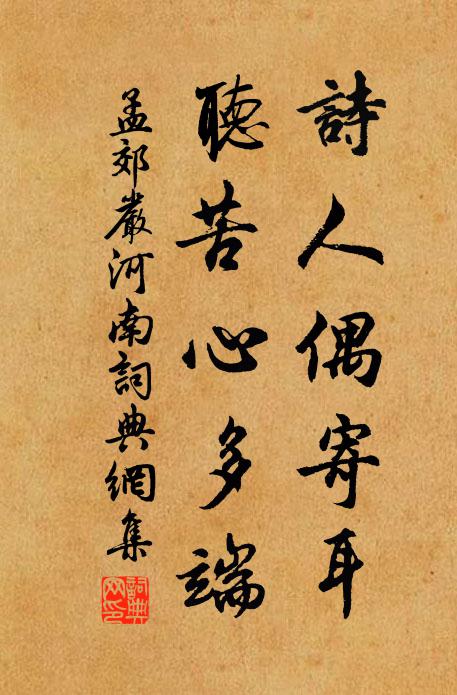 詩人偶寄耳
聽苦心多端
孟郊嚴河南詞典網集
詞典網印